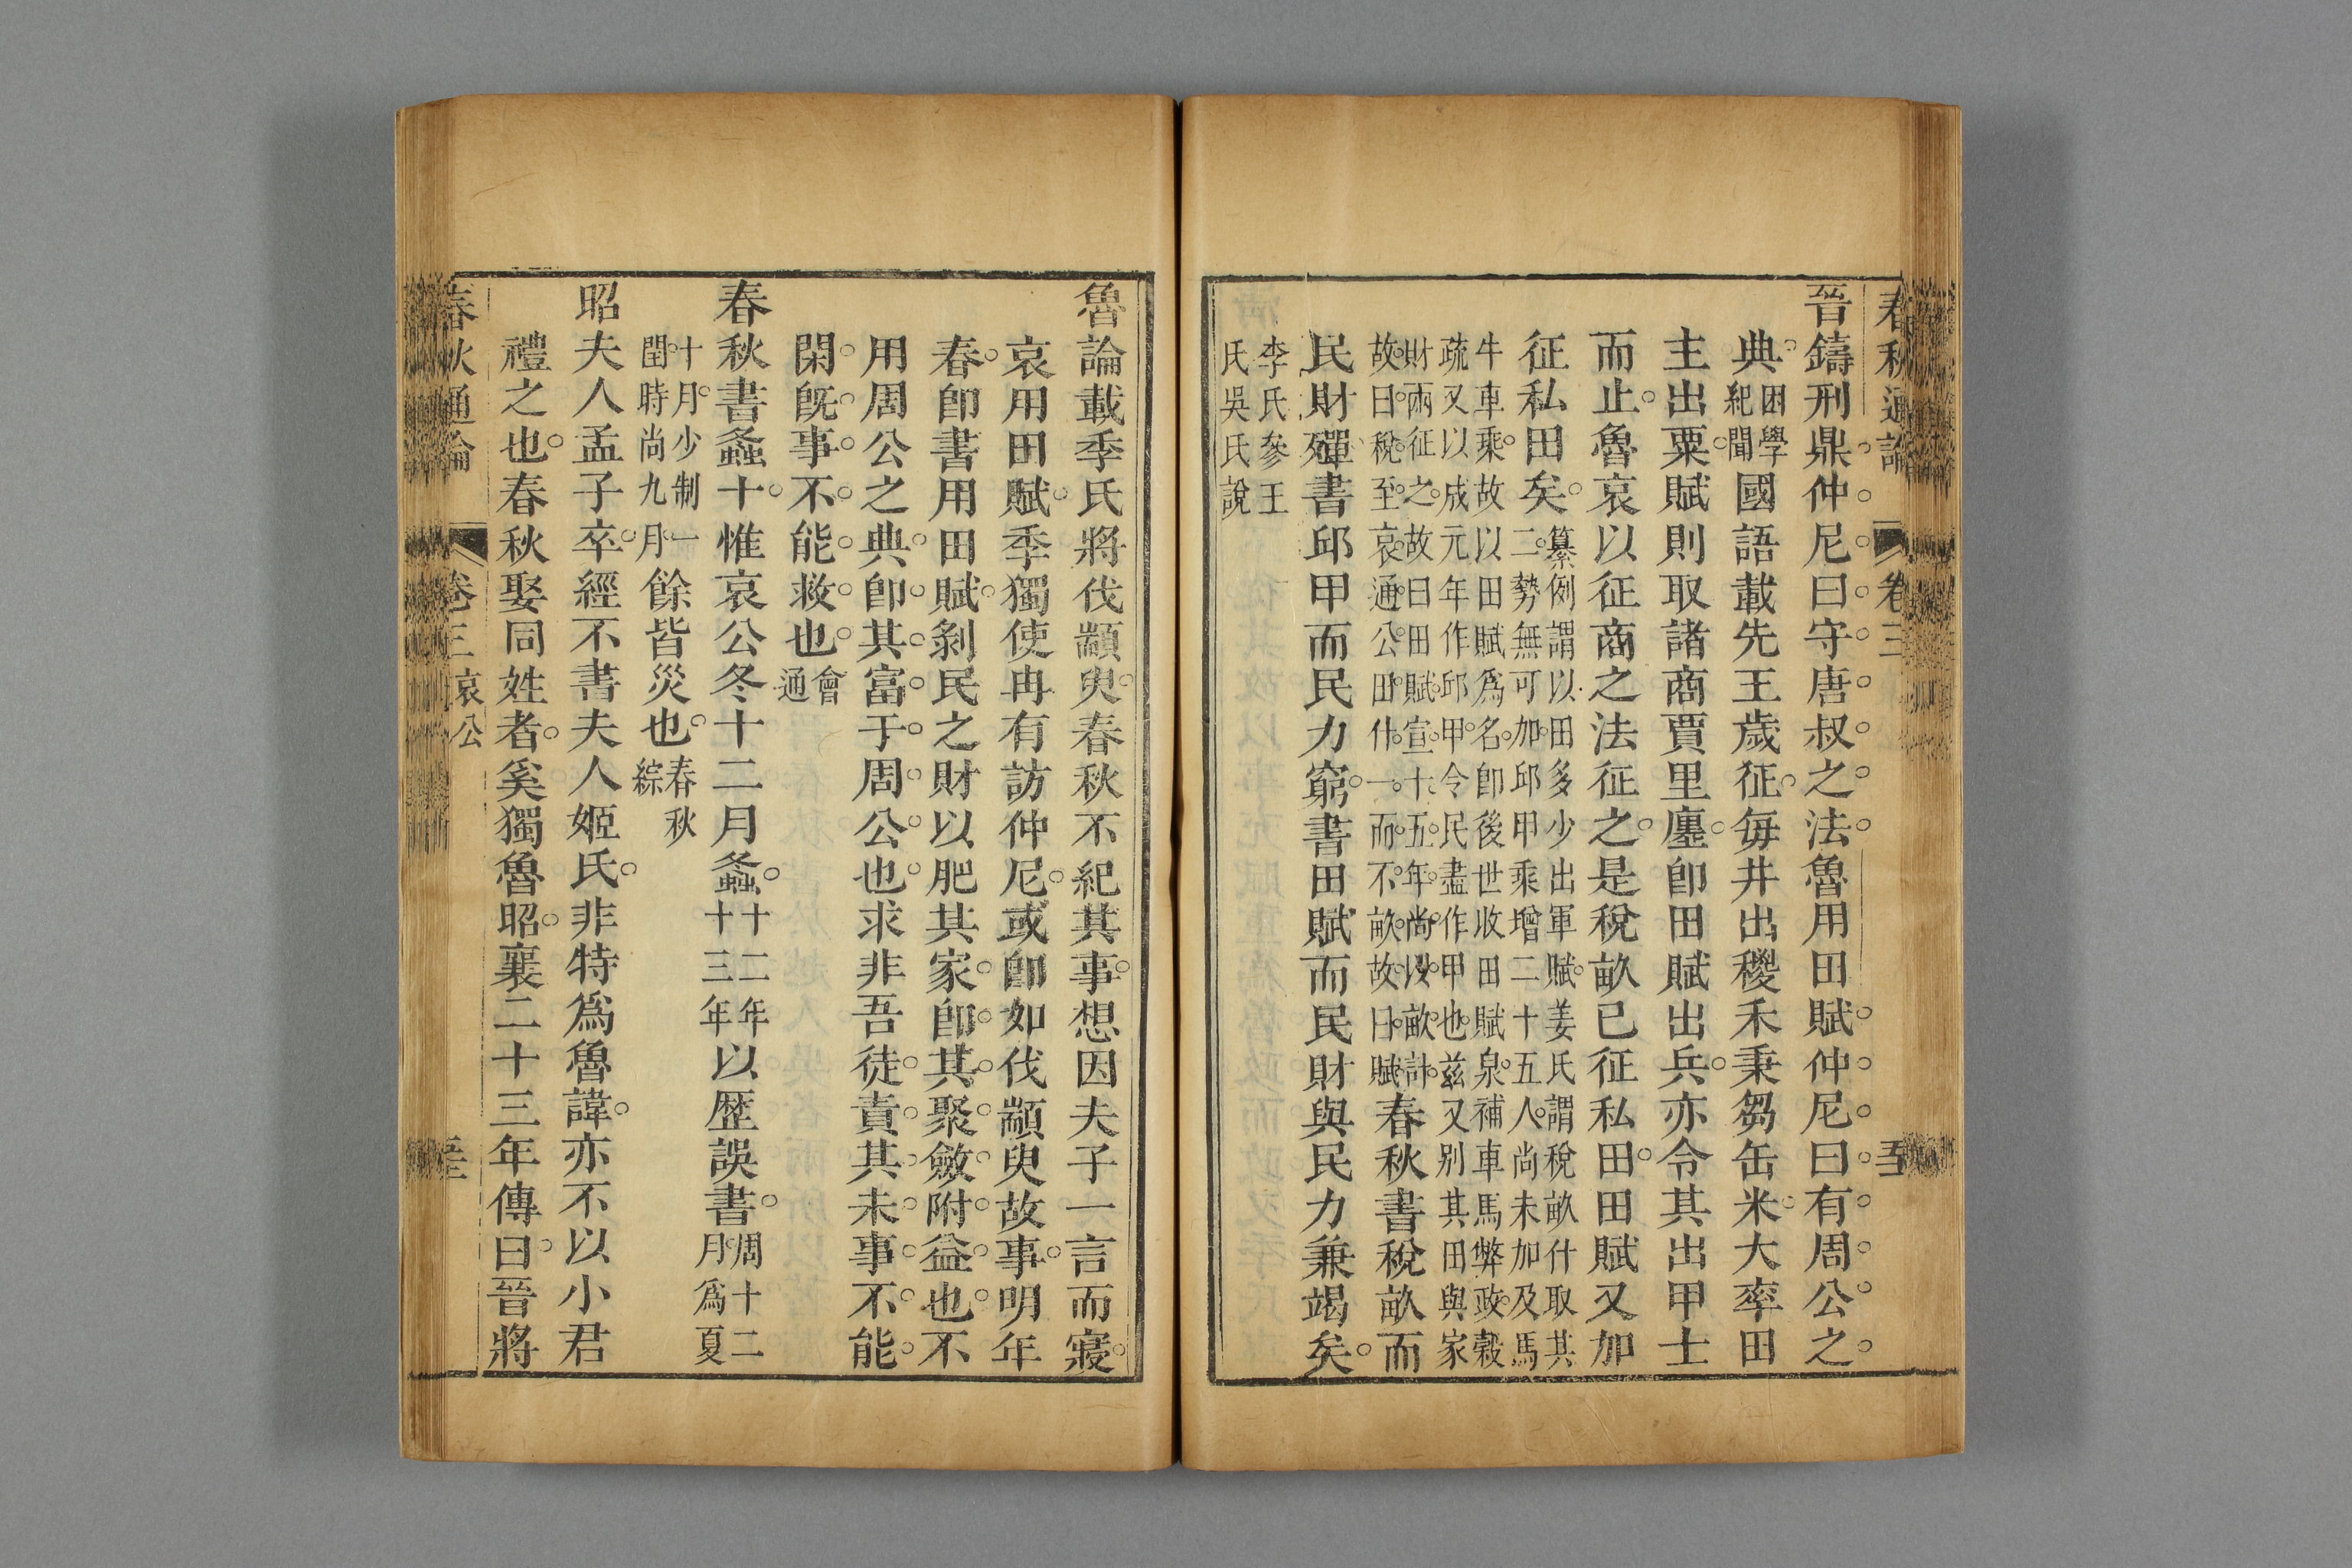 春秋通論 卷三 至
晉鑄刑鼎仲尼曰守唐叔之法魯用田賦仲尼曰有周公之
典困學紀聞國語載先王歲征每井出稯禾秉芻缶米大率田
主出粟賦則取諸商賈里廛卽田賦出兵亦令其出甲士
而止魯哀以征商之法征之是稅畝已征私田田賦又加
征私田矣纂例謂以田多少出軍賦姜氏謂稅畝什取其二勢無可加邱甲乘增二十五人尚未加及馬
牛車乘故以田賦爲名卽後世收田賦泉補車馬弊政穀疏又以成元年作邱甲令民盡作甲也兹又别其田與家
財兩征之故曰田賦宣十五年尚以畝計故曰稅至哀通公田什一而不畝故曰賦春秋書稅畝而
民財殫書邱甲而民力窮書田賦而民財與民力兼竭矣
李氏參王氏吳氏說
魯論載季氏將伐顓臾春秋不紀其事想因夫子一言而寢
哀用田賦季獨使冉有訪仲尼或卽如伐顓臾故事明年
春卽書用田賦剝民之財以肥其家卽其聚斂附益也不
用周公之典卽其富于周公也求非吾徒責其未事不能
閑旣事不能救也會通
春秋書螽十惟哀公冬十二月螽十二年十三年以歴誤書周十二月爲夏
十月少制一閏時尚九月餘皆災也春秋綜
昭夫人孟子卒經不書夫人姬氏非特爲魯諱亦不以小君
禮之也春秋娶同姓者奚獨魯昭襄二十三年傳曰晉將
春秋通論 卷三 哀公